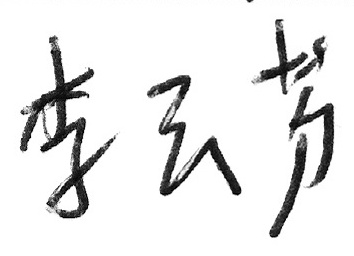 李云芳